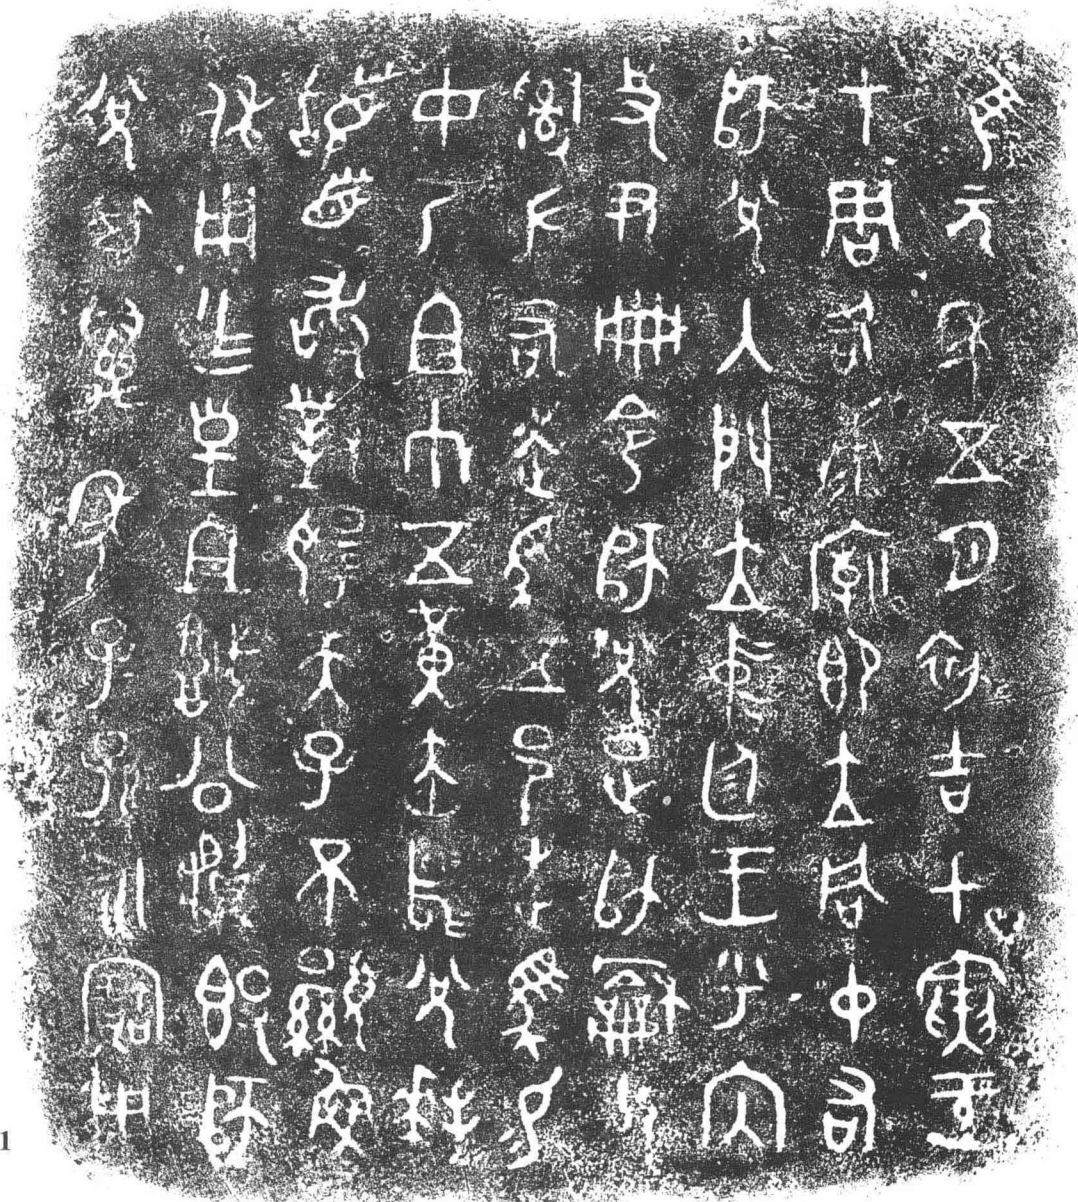 隹元年五月初吉甲寅王
才周各康廟即立同中右
師兌入門立中廷王乎內
史尹册令師兌疋師龢父
𤔲左右走馬五邑走馬易
女乃且巾五黃赤舄兌拜
𩒨首敢對揚天子不顯魯
休用乍皇且城公𪔉簋師
兌其萬年子子孫孫永寶用
1